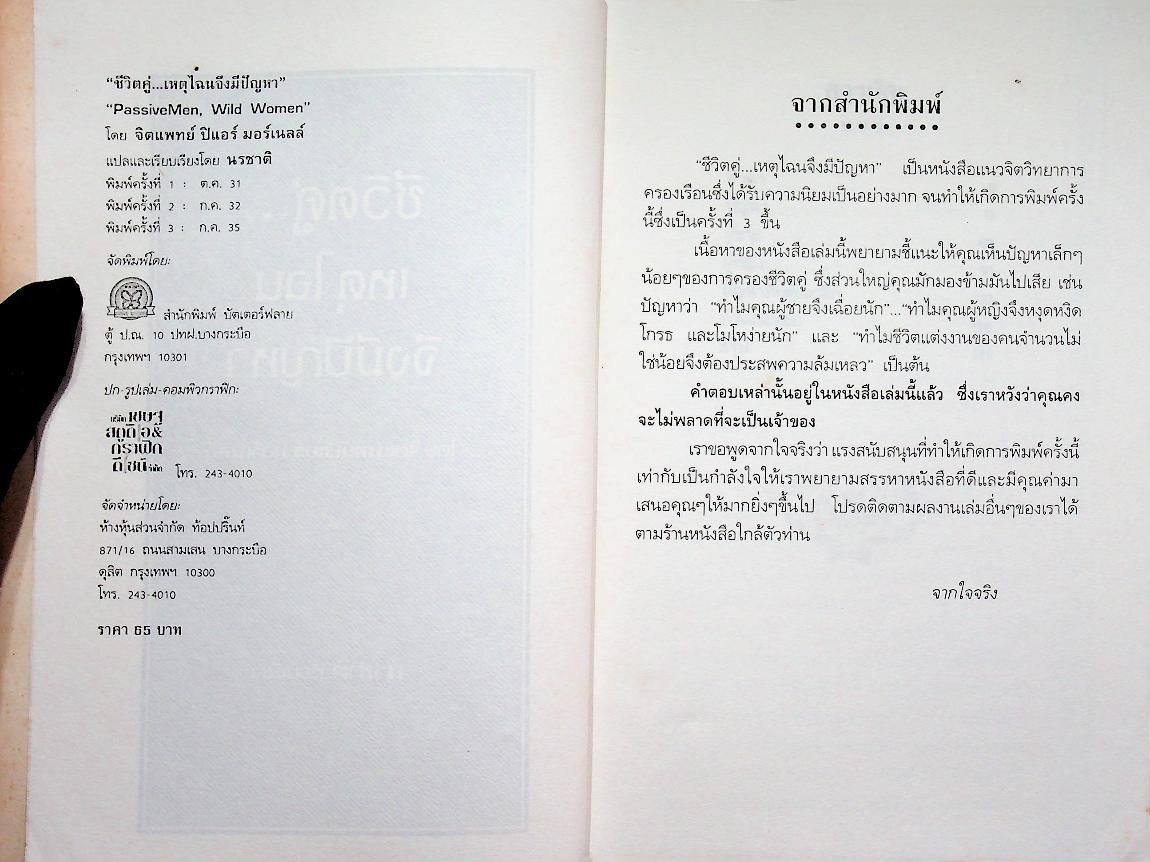 “ชีวิตคู่...เหตุไฉนจึงมีปัญหา”
“PassiveMen, Wild Women”
โดย จิตแพทย์ ปิแอร์ มอร์เนลล์
แปลและเรียบเรียงโดย นรชาติ
พิมพ์ครั้งที่ 1 : ต.ค. 31
พิมพ์ครั้งที่ 2 : ก.ค. 32
พิมพ์ครั้งที่ 3 : ก.ค. 35
จัดพิมพ์โดย:
สำนักพิมพ์ บัตเตอร์ฟลาย
ตู้ ป.ณ. 10 ปทฝ.บางกระบือ
กรุงเทพฯ 10301
ปก-รูปเล่ม-คอมพิวกราฟิก:
บริษัท เชษฐ
สตูดิโอ&
กราฟิก
ดีไซน์ จำกัด โทร. 243-4010
จัดจำหน่ายโดย:
ห้างหุ้นส่วนจำกัด ท้อปปริ๊นท์
871/16 ถนนสามเสน บางกระบือ
ดุสิต กรุงเทพฯ 10300
โทร. 243-4010
ราคา 65 บาท
จากสำนักพิมพ์
“ชีวิตคู่...เหตุไฉนจึงมีปัญหา” เป็นหนังสือแนวจิตวิทยาการ
ครองเรือนซึ่งได้รับความนิยมเป็นอย่างมาก จนทำให้เกิดการพิมพ์ครั้ง
นี้ซึ่งเป็นครั้งที่ 3 ขึ้น
เนื้อหาของหนังสือเล่มนี้พยายามชี้แนะให้คุณเห็นปัญหาเล็กๆ
น้อยๆของการครองชีวิตคู่ ซึ่งส่วนใหญ่คุณมักมองข้ามมันไปเสีย เช่น
ปัญหาว่า “ทำไมคุณผู้ชายจึงเฉื่อยนัก”...“ทำไมคุณผู้หญิงจึงหงุดหงิด
โกรธ และโมโหง่ายนัก” และ “ทำไมชีวิตแต่งงานของคนจำนวนไม่
ใช่น้อยจึงต้องประสพความล้มเหลว” เป็นต้น
คำตอบเหล่านั้นอยู่ในหนังสือเล่มนี้แล้ว ซึ่งเราหวังว่าคุณคง
จะไม่พลาดที่จะเป็นเจ้าของ
เราขอพูดจากใจจริงว่า แรงสนับสนุนที่ทำให้เกิดการพิมพ์ครั้งนี้
เท่ากับเป็นกำลังใจให้เราพยายามสรรหาหนังสือที่ดีและมีคุณค่ามา
เสนอคุณๆให้มากยิ่งๆขึ้นไป โปรดติดตามผลงานเล่มอื่นๆของเราได้
ตามร้านหนังสือใกล้ตัวท่าน
จากใจจริง